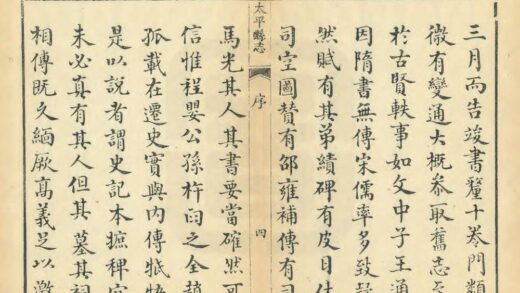 三月而告竣書釐十卷門類
微有變通大概叅取舊志
於古賢軼事如文中子王通
因隋書無傳宋儒率多致疑
然賦有其弟績碑有皮日休
司空圖贊有邵雍補傳有司
太平縣志
序
四
馬光其人其書要當確然可
信惟程嬰公孫杵臼之全趙
孤載在遷史實與內傳牴牾
是以說者謂史記本摭稗官
未必真有其人但其墓其祠
相傳既久緬厥高義足以激